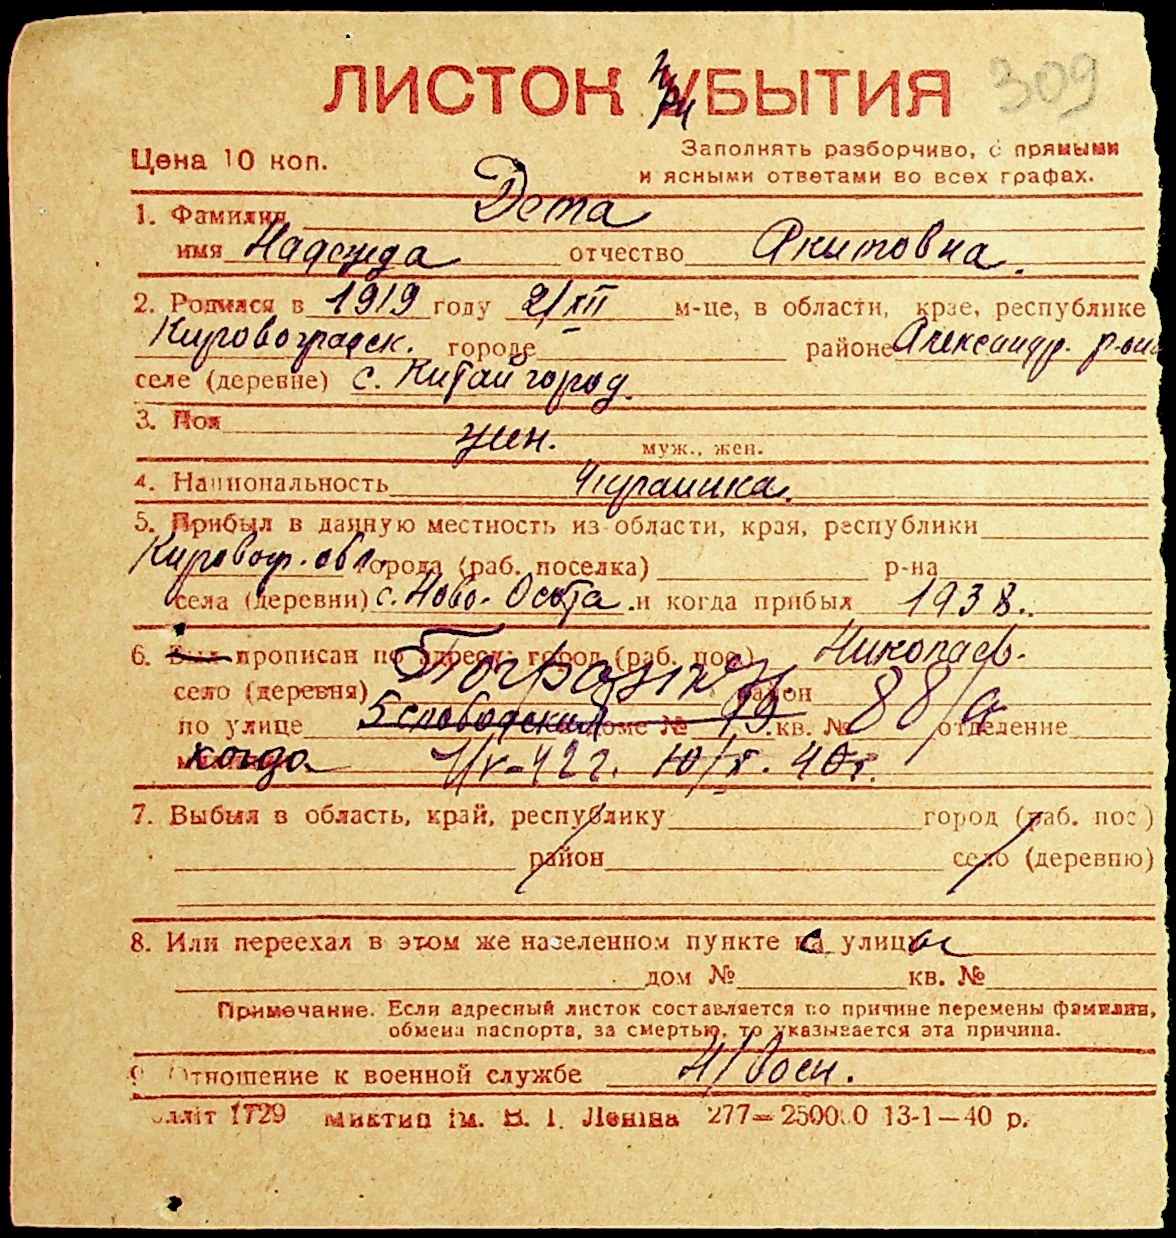 ЛИСТОК УБЫТИЯ 309
При
Цена 10 коп.
Заполнять разборчиво, с прямыми
и ясными ответами во всех графах.
1. Фамилия Дета
имя Надежда отчество Акимовна.
2. Родился в 1919 году 2/XII м-це, в области, крае, республике
Кировоградск. городе районе Александр. р-она
селе (деревне) с. Китайгород.
3. Пол жен. муж., жен.
4. Национальность Украинка.
5. Прибыл в данную местность из области, края, республики
Кировогр. обл. города (раб. поселка) р-на
села (деревни) с. Ново-Осота и когда прибыл 1938.
6. Был прописан по адресу: город (раб. пос.) Николаев.
село (деревня) Погранич. район
по улице 5 слободская доме № 19 кв. № 88/а отделение
когда 10/X. 40 г.
7. Выбыл в область, край, республику город (раб. пос.)
район село (деревню)
8. Или переехал в этом же населенном пункте с улицы
дом № кв. №
Примечание. Если адресный листок составляется по причине перемены фамилии,
обмена паспорта, за смертью, то указывается эта причина.
9. Отношение к военной службе Н/воен.
1729 Миктип ім. В. І. Леніна 277—250000 13-1—40 р.